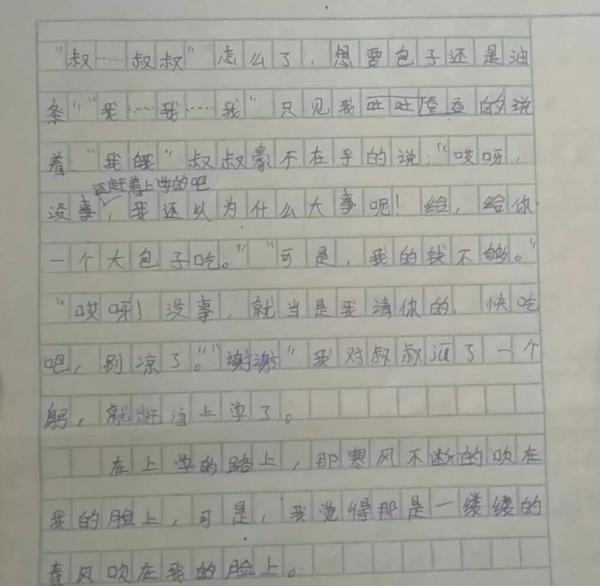 “叔……叔叔”怎么了，想要包子还是油
条“我……我……我”只见我吐吐的说
着“我饿”叔叔豪不在乎的说：“哎呀，
还赶着上学的吧
没事，我还以为什么大事呢！给，给你
一个大包子吃。”“可是，我的钱不够。”
“哎呀！没事，就当是我请你的，快吃
吧，别凉了。”“谢谢”我对叔叔了一个
躬，就赶上学了。
在上学的路上，那寒风不断的吹在
我的脸上，可是，我觉得那是一缕缕的
春风吹在我的脸上。